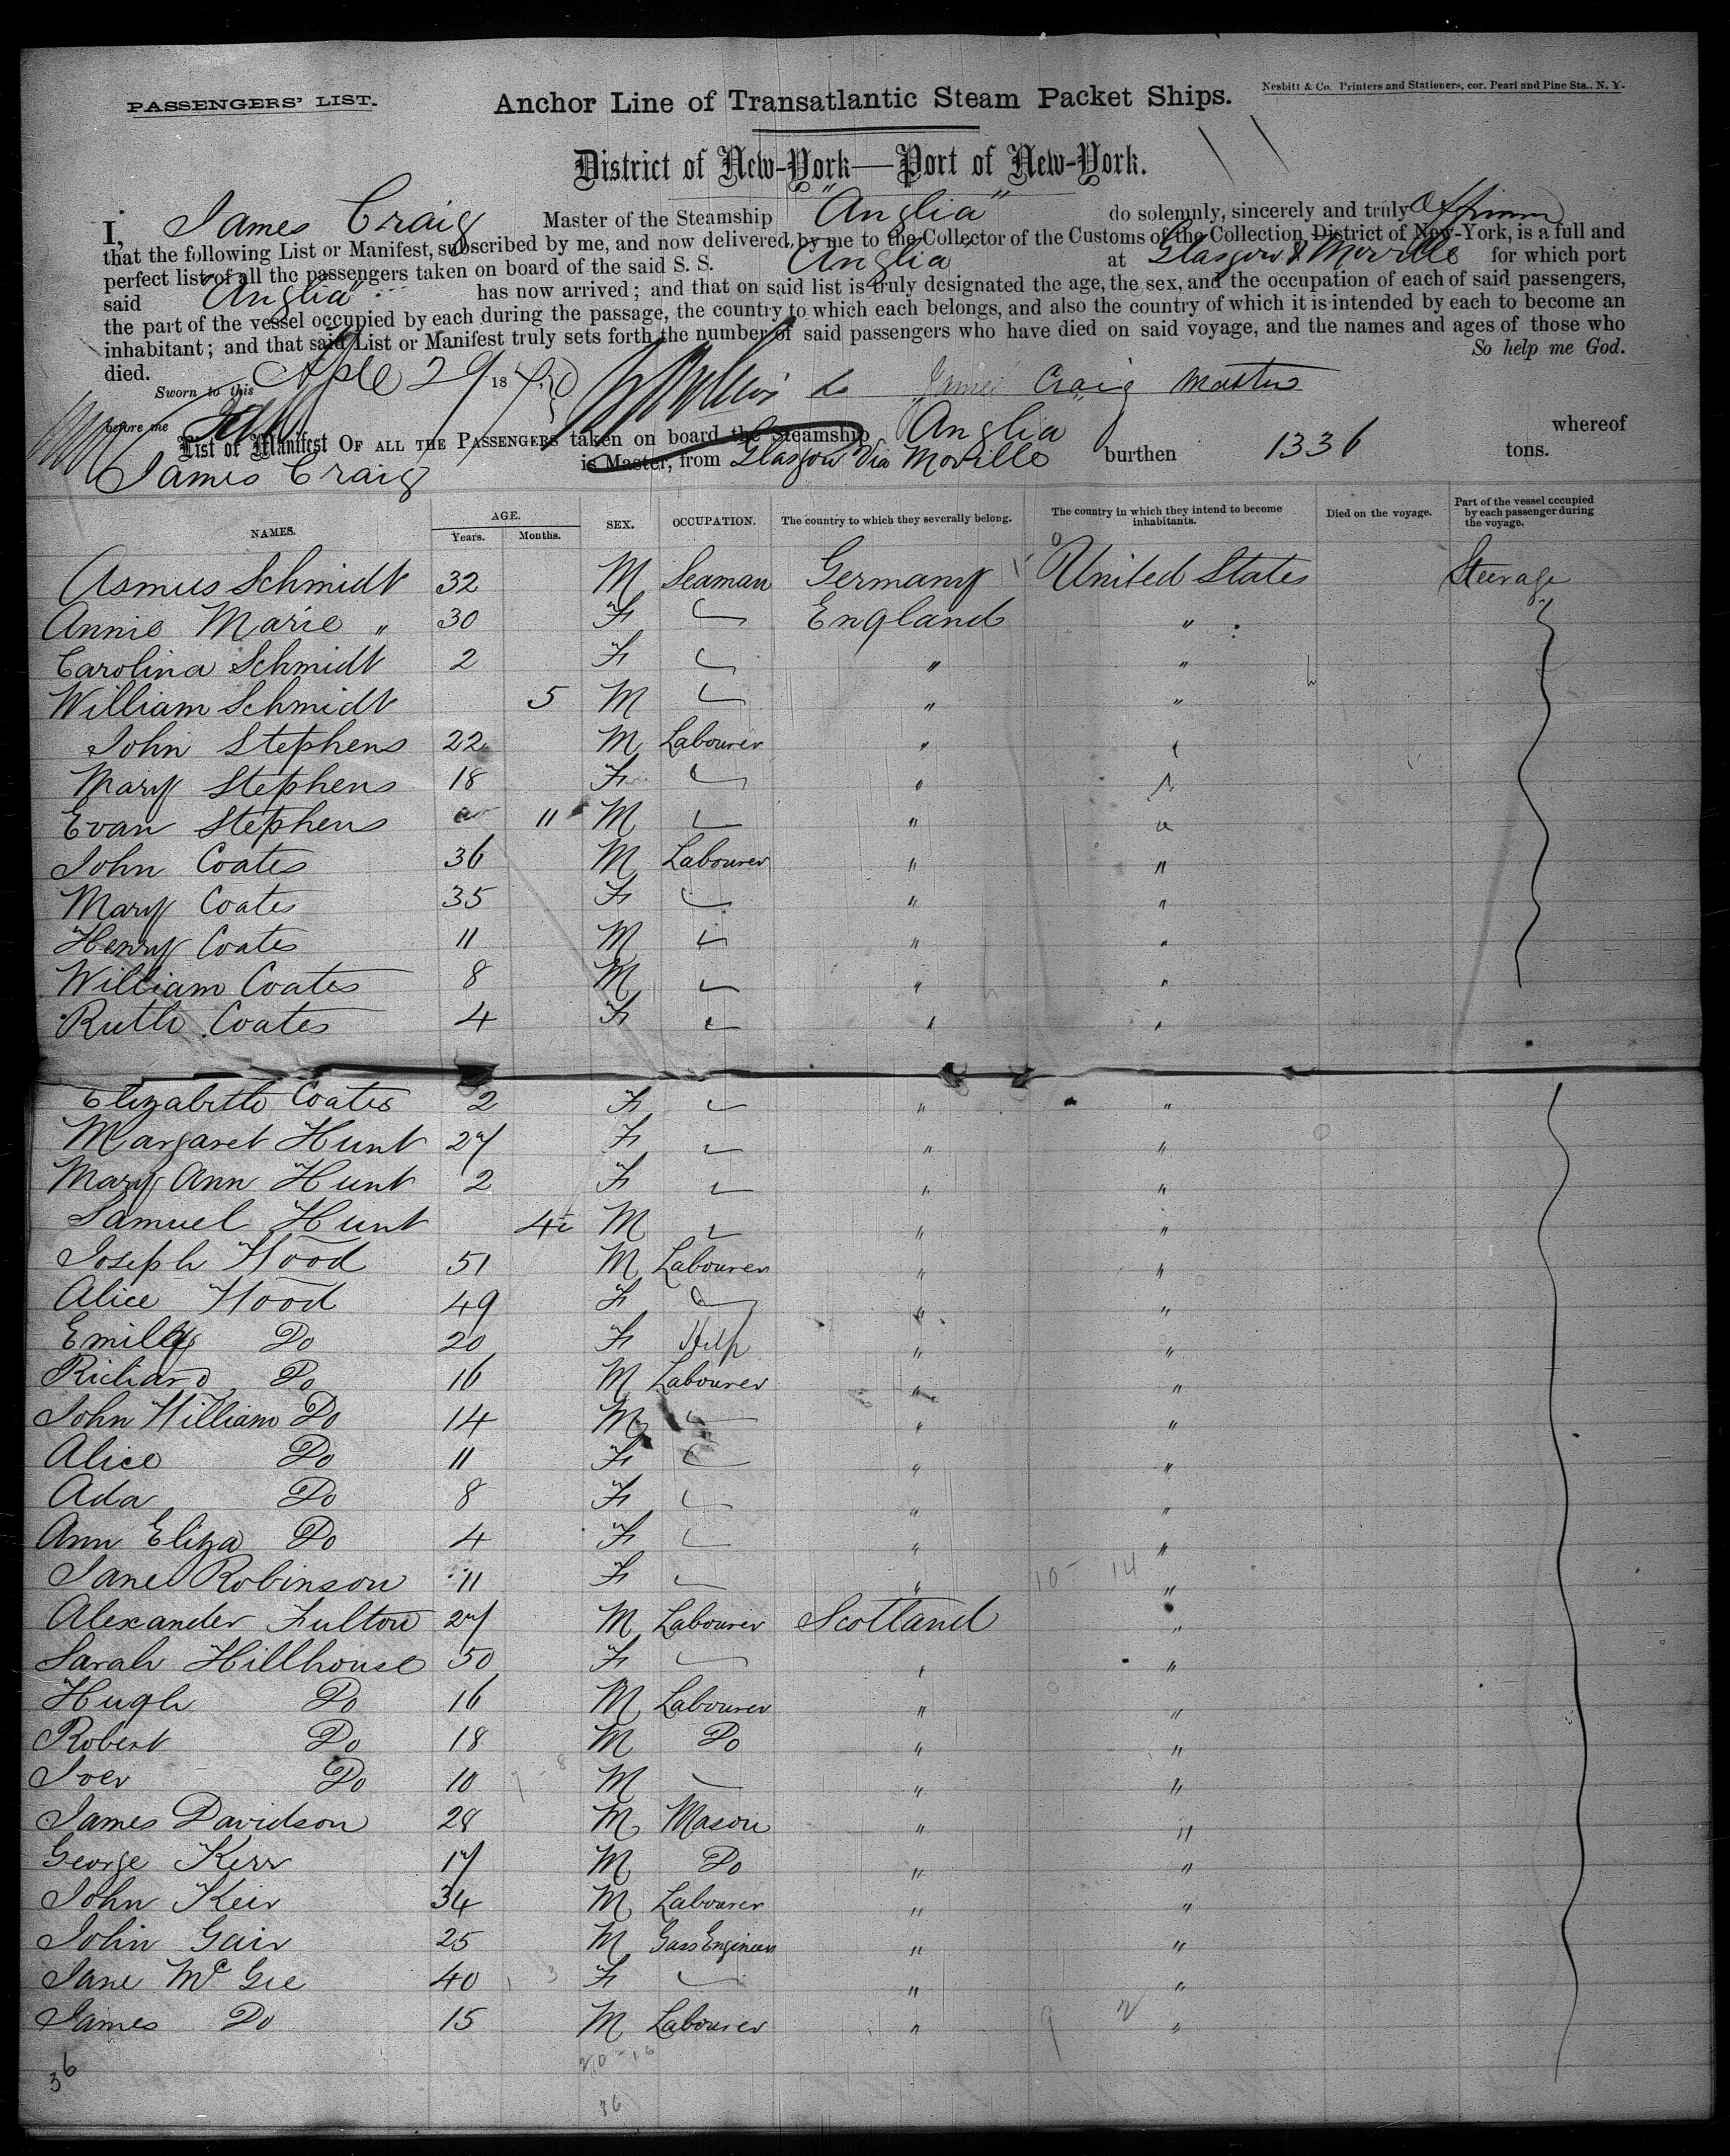 PASSENGERS' LIST.
Anchor Line of Transatlantic Steam Packet Ships.
Nesbitt & Co. Printers and Stationers, cor. Pearl and Pine Sts., N. Y.
District of New-York—Port of New-York.
I, James Craig Master of the Steamship "Anglia" do solemnly, sincerely and truly Affirm
that the following List or Manifest, subscribed by me, and now delivered by me to the Collector of the Customs of the Collection District of New-York, is a full and
perfect list of all the passengers taken on board of the said S. S. Anglia at Glasgow & Moville for which port
said "Anglia" has now arrived; and that on said list is truly designated the age, the sex, and the occupation of each of said passengers,
the part of the vessel occupied by each during the passage, the country to which each belongs, and also the country of which it is intended by each to become an
inhabitant; and that said List or Manifest truly sets forth the number of said passengers who have died on said voyage, and the names and ages of those who
died. So help me God.
Sworn to this 29 1870 James Craig Master
before me
List or Manifest OF ALL THE PASSENGERS taken on board the Steamship Anglia whereof
James Craig is Master, from Glasgow Via Moville burthen 1336 tons.
NAMES. AGE. Years. Months. SEX. OCCUPATION. The country to which they severally belong. The country in which they intend to become inhabitants. Died on the voyage. Part of the vessel occupied by each passenger during the voyage.
Asmus Schmidt 32 M Seaman Germany United States Steerage
Annie Marie " 30 F England "
Carolina Schmidt 2 F " "
William Schmidt 5 M " "
John Stephens 22 M Labourer " "
Mary Stephens 18 F " "
Evan Stephens 11 M " "
John Coates 36 M Labourer " "
Mary Coates 35 F " "
Henry Coates 11 M " "
William Coates 8 M " "
Ruth Coates 4 F " "
Elizabeth Coates 2 F " "
Margaret Hunt 27 F " "
Mary Ann Hunt 2 F " "
Samuel Hunt 4 M " "
Joseph Wood 51 M Labourer " "
Alice Wood 49 F " "
Emily Do 20 F Help " "
Richard Do 16 M Labourer " "
John William Do 14 M " "
Alice Do 11 F " "
Ada Do 8 F " "
Ann Eliza Do 4 F " "
Jane Robinson 11 F " 10 - 14 "
Alexander Fulton 27 M Labourer Scotland "
Sarah Hillhouse 50 F " "
Hugh Do 16 M Labourer " "
Robert Do 18 M Do " "
Iver Do 10 M " "
James Davidson 28 M Mason " "
George Kerr 17 M Do " "
John Keir 34 M Labourer " "
John Gair 25 M Gass Engineer " "
Jane McGee 40 F " "
James Do 15 M Labourer " "
36
20 - 16
36